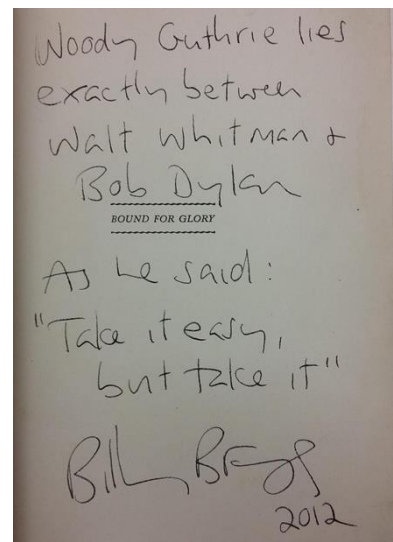 Woody Guthrie lies
exactly between
Walt Whitman +
Bob Dylan
BOUND FOR GLORY
As he said:
"Take it easy,
but take it"
Billy Bragg
2012